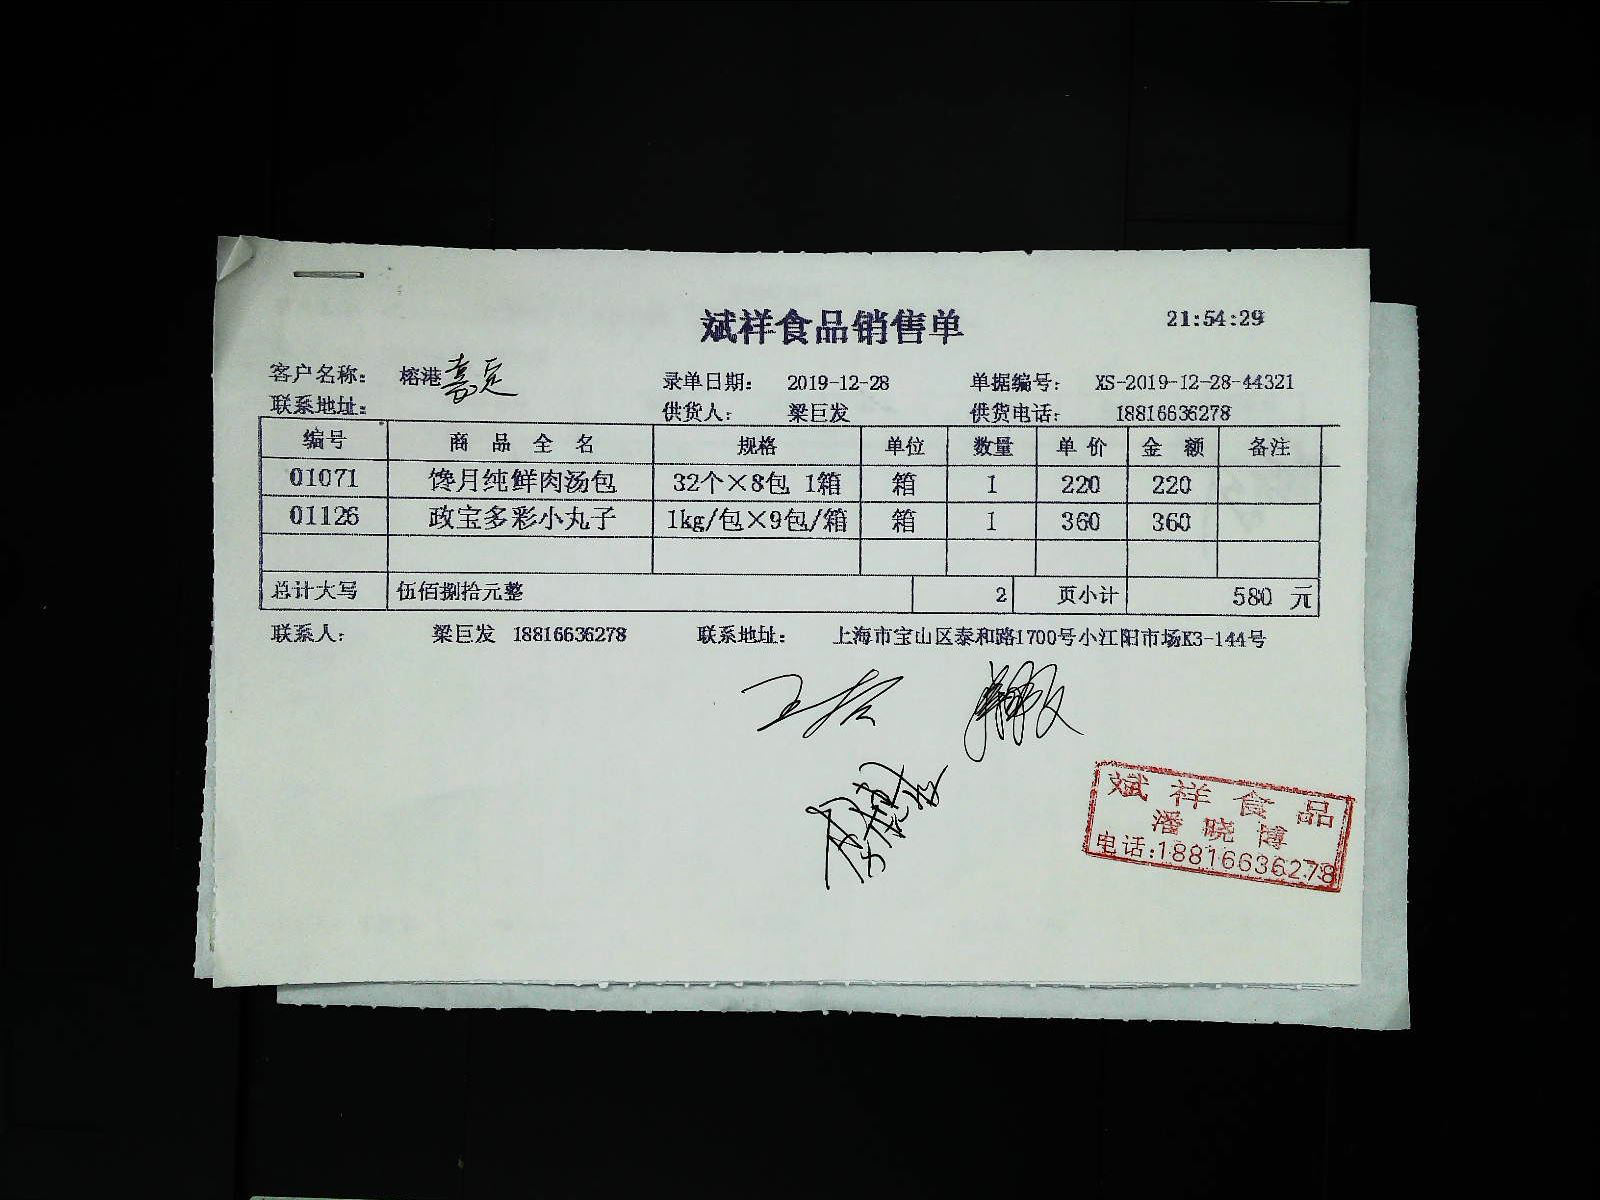 斌祥食品销售单 21:54:29
客户名称： 榕港嘉定 录单日期： 2019-12-28 单据编号： XS-2019-12-28-44321
联系地址： 供货人： 梁巨发 供货电话： 18816636278
编号 商 品 全 名 规格 单位 数量 单 价 金 额 备注
01071 馋月纯鲜肉汤包 32个×8包 1箱 箱 1 220 220
01126 政宝多彩小丸子 1kg/包×9包/箱 箱 1 360 360
总计大写 伍佰捌拾元整 2 页小计 580 元
联系人： 梁巨发 18816636278 联系地址： 上海市宝山区泰和路1700号小江阳市场K3-144号
斌祥食品
潘晓博
电话:18816636278